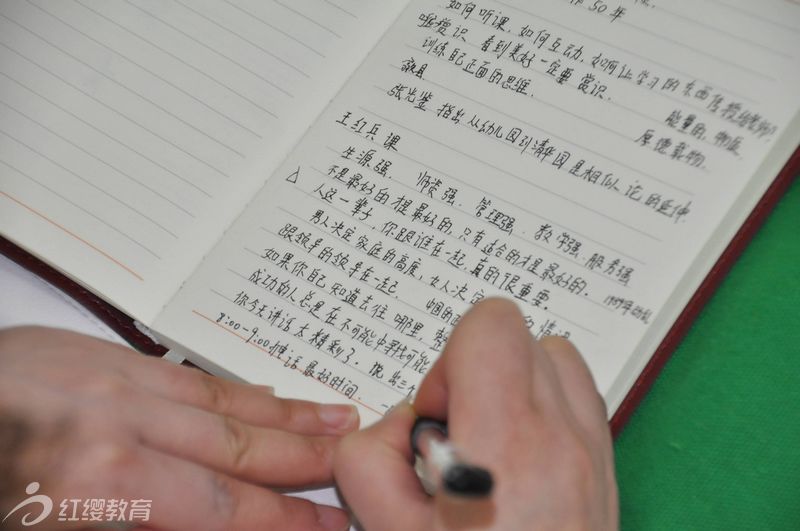 50年
如何听课,如何互动,如何让学习的东西传授给老师?
唯爱识 看到美好一定要赏识. 能量的,物质
训练自己正面的思维. 厚德载物.
歙县
张光鉴 指出从幼儿园到清华园是相似论的延伸
王红兵课
生源强、师资强、管理强、教学强、服务强
△ 不是最好的才是最好的,只有适合的才是最好的.
人这一辈子,你跟谁在一起,真的很重要. 1989年
男人决定家庭的高度,女人决定
跟领导的领导在一起.
如果你自己知道去往哪里,整
成功的人总是在不可能中寻找可能
你今天讲话太精彩了,
8:00-9:00 电话最好时间.
红缨教育